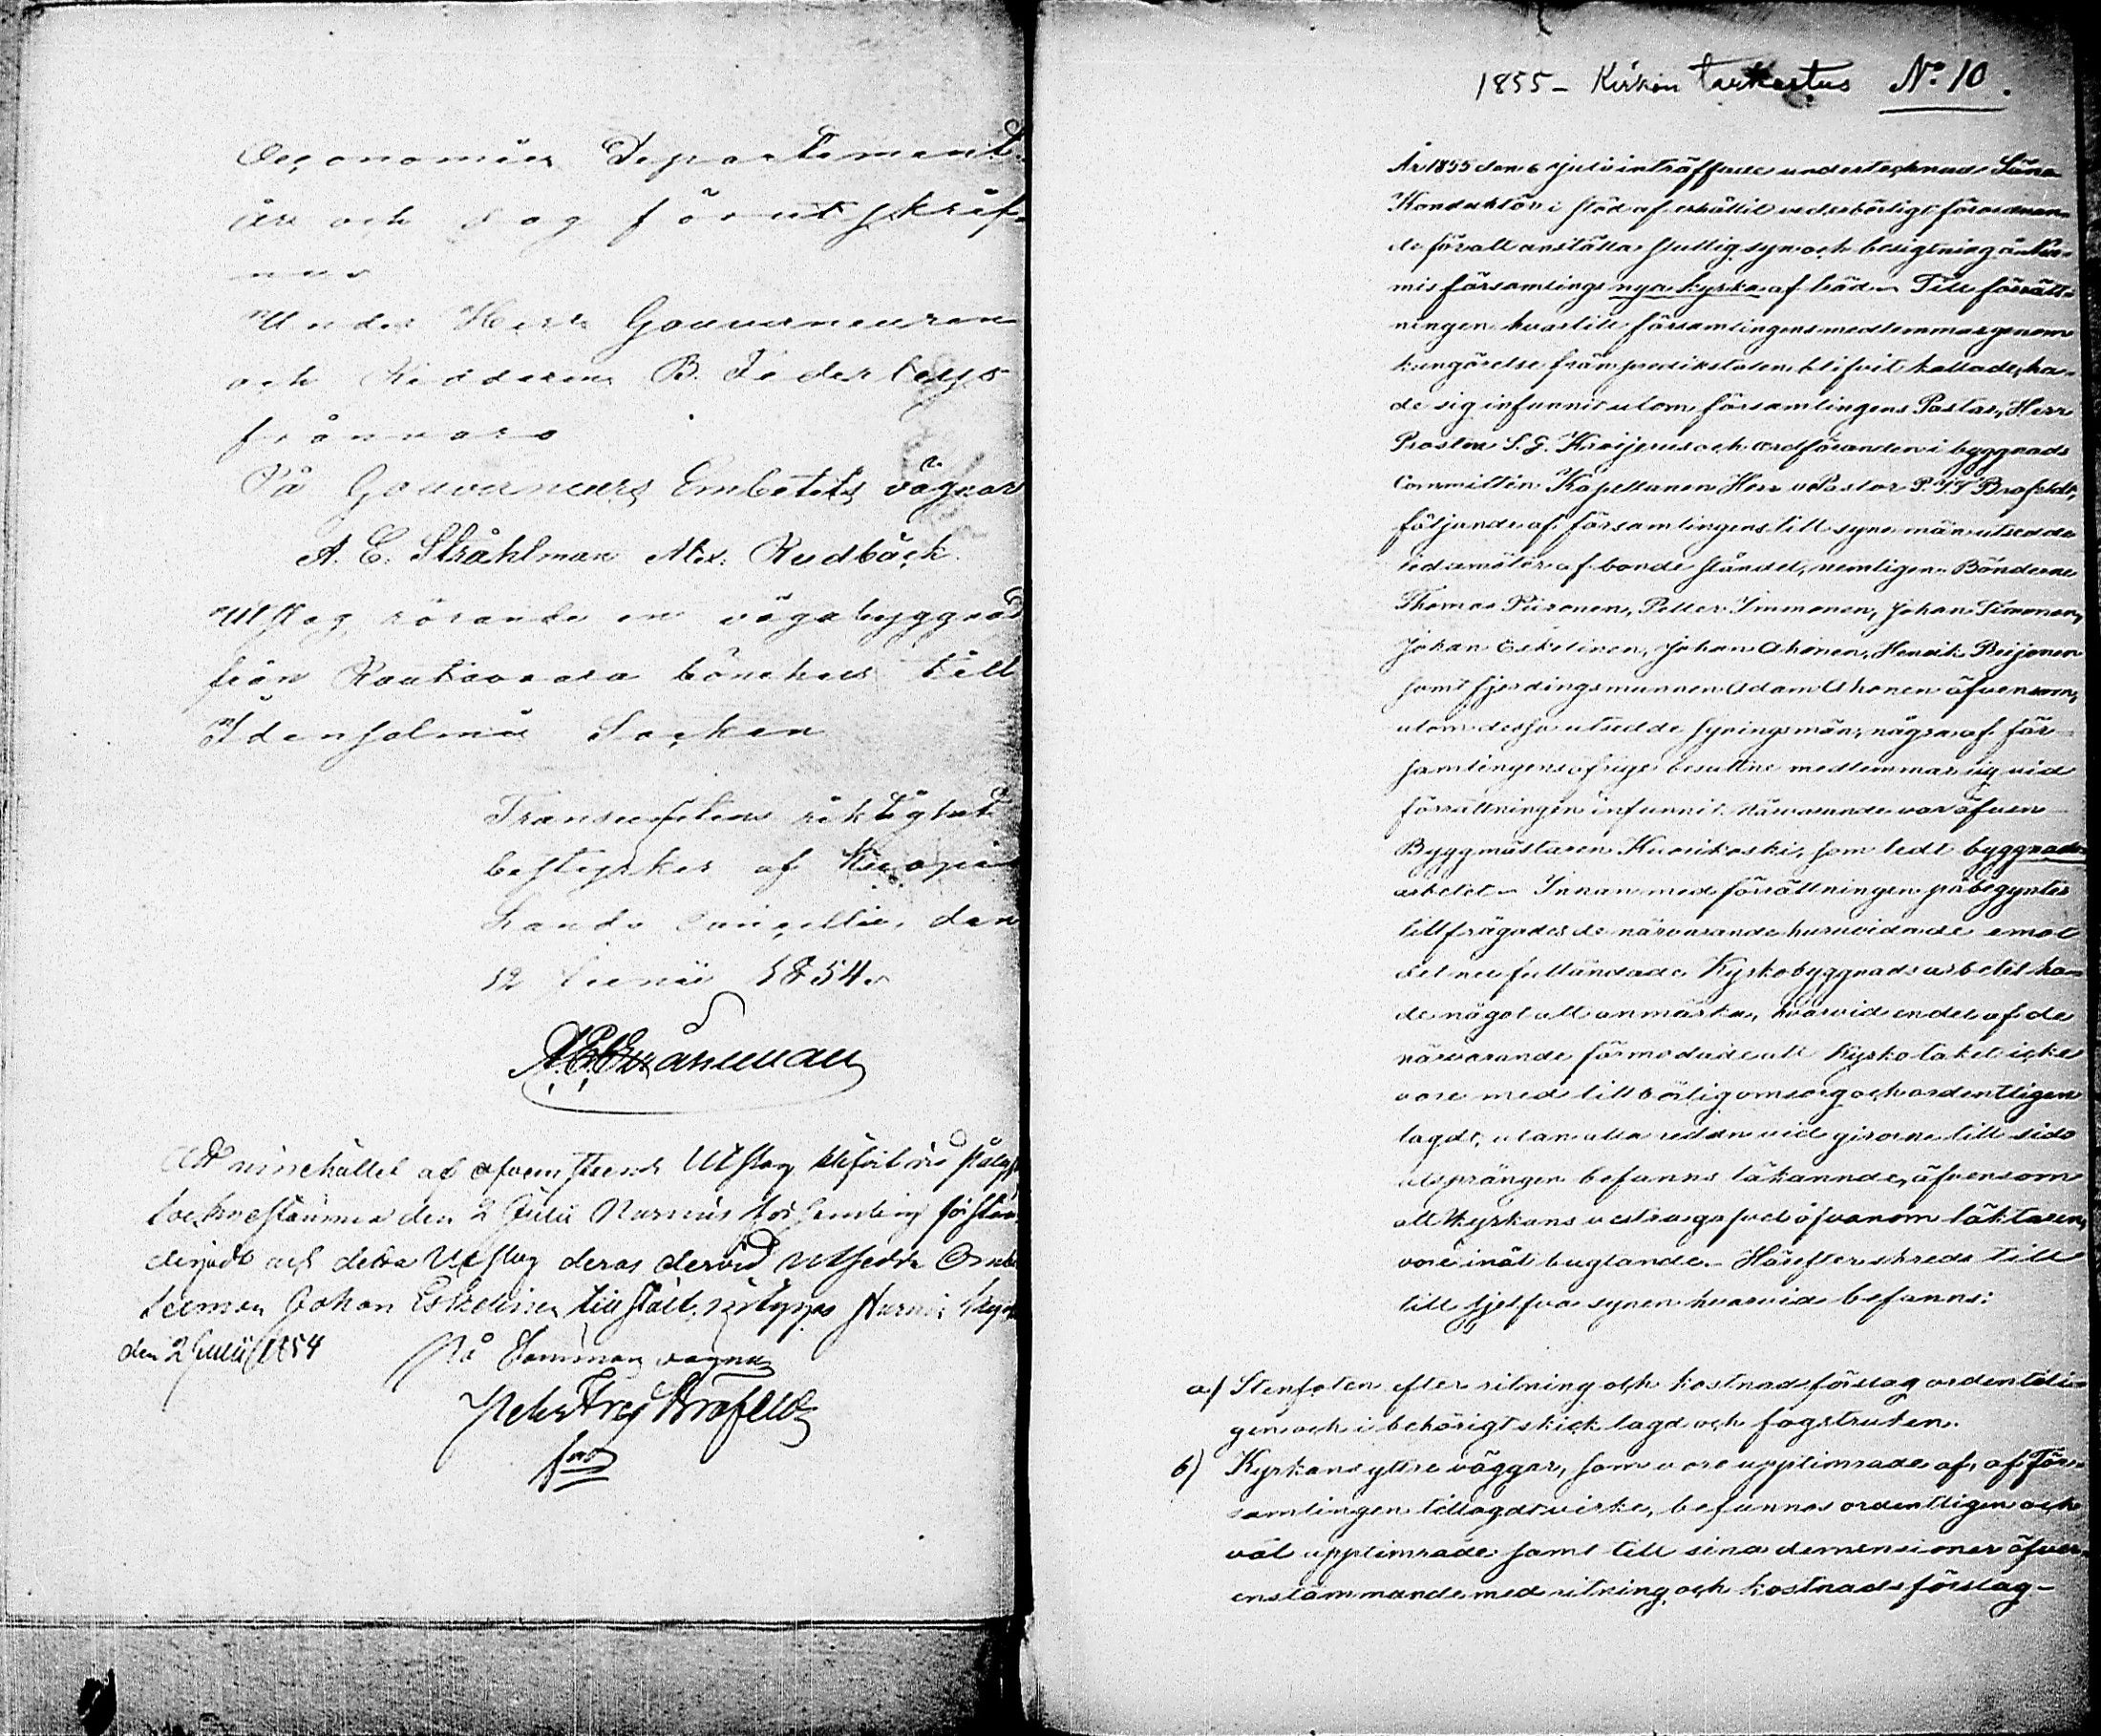 Oeconomiæ Departement.
år och dag förutskrif-
ne.
Under Herr Gouverneuren
och Riddaren B. Federleys
frånvaro
På Gouverneurs Embetets vägnar
A. E. Stråhlman Alex. Rudbäck.
Utslag rörande en vägabyggnad
från Rautavaara bönehus till
Idensalmi Socken
Transumtens riktighet
bestyrker af Kuopio
Lands Cancellie, den
12 Junii 1854.
Att innehållet af ofvanstående Utslag blifvit vid
socknestämma den 2 Julii Nurmis församling förstän-
digadt och detta Utslag deras dervid utsedde Ombu
Johan Eskelinen tillstäldt, intygas Nurmis
den 2 Julii 1854
På Sommnans vägnar
Brofeldt
1855 - Kirkon tarkastus No. 10.
År 1855 den 6 Juli inträffade undertecknade Läne
Konduktör i stöd af erhållit vederbörligt förordnan-
de för att anställa slutlig syn och besigtning å Nur-
mis församlings nya kyrka af träd. Till förrätt-
ningen hvartill församlingens medlemmar genom
kungörelse från predikstolen blifvit kallade, ha-
de sig infunnit utom församlingens Pastor, Herr
Prosten S. G. Kroijerus och ordföranden i byggnads
Committén Kapellanen Herr v Pastor P. F. Brofeldt,
följande af församlingens till syne män utsedda
ledamöter af bonde ståndet, nemligen Bönderne
Thomas Piironen, Petter Immonen, Johan Timonen,
Johan Eskelinen, Johan Ahonen, Henrik Reijonen
samt fjerdingsmannen Adam Ahonen äfvensom,
utom dessa utsedde syningsmän, några af för-
samlingens öfrige besuttne medlemmar sig vid
förrättningen infunnit. Närvarande var äfven
Byggmästaren Kuorikoski, som ledt byggnads
arbetet. Innan med förrättningen påbegyntes
tillfrågades de närvarande huruvida de emot
det nu fulländade Kyrkobyggnadsarbetet ha-
de något att anmärka, hvarvid en del af de
närvarande förmodade att Kyrkotaket icke
vore med tillbörlig omsorg och ordentligen
lagdt, utan alla redan vid girorne till sido
utsprången befunns läkannde, äfvensom
att Kyrkans vestra gafvel ofvanom läktaren,
vore inåt buglande. Härefter skreds till
till sjelfva synen hvarvid befanns:
a) Stenfoten efter ritning och kostnadsförslag ordentli-
gen och i behörigt skick lagd och fogstruken.
b) Kyrkans yttre väggar, som vore upptimrade af, af För-
samlingen tillagdt virke, befunnos ordentligen och
väl upptimrade samt till sina demensioner öfver-
enstämmande med ritning och kostnads förslag-